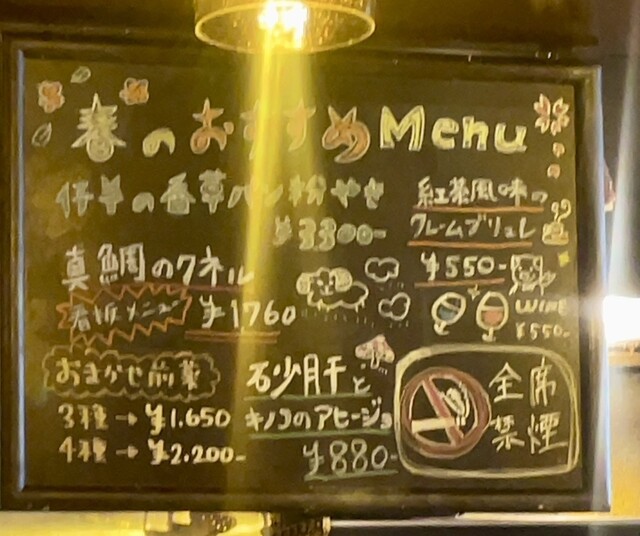 春のおすすめMenu
仔羊の香草パン粉やき
¥3300-
紅茶風味の
クレームブリュレ
¥550-
真鯛のクネル
看板メニュー ¥1760
WINE
¥550-
おまかせ前菜
3種→¥1.650
4種→¥2.200-
砂肝と
キノコのアヒージョ
¥880-
全席
禁煙